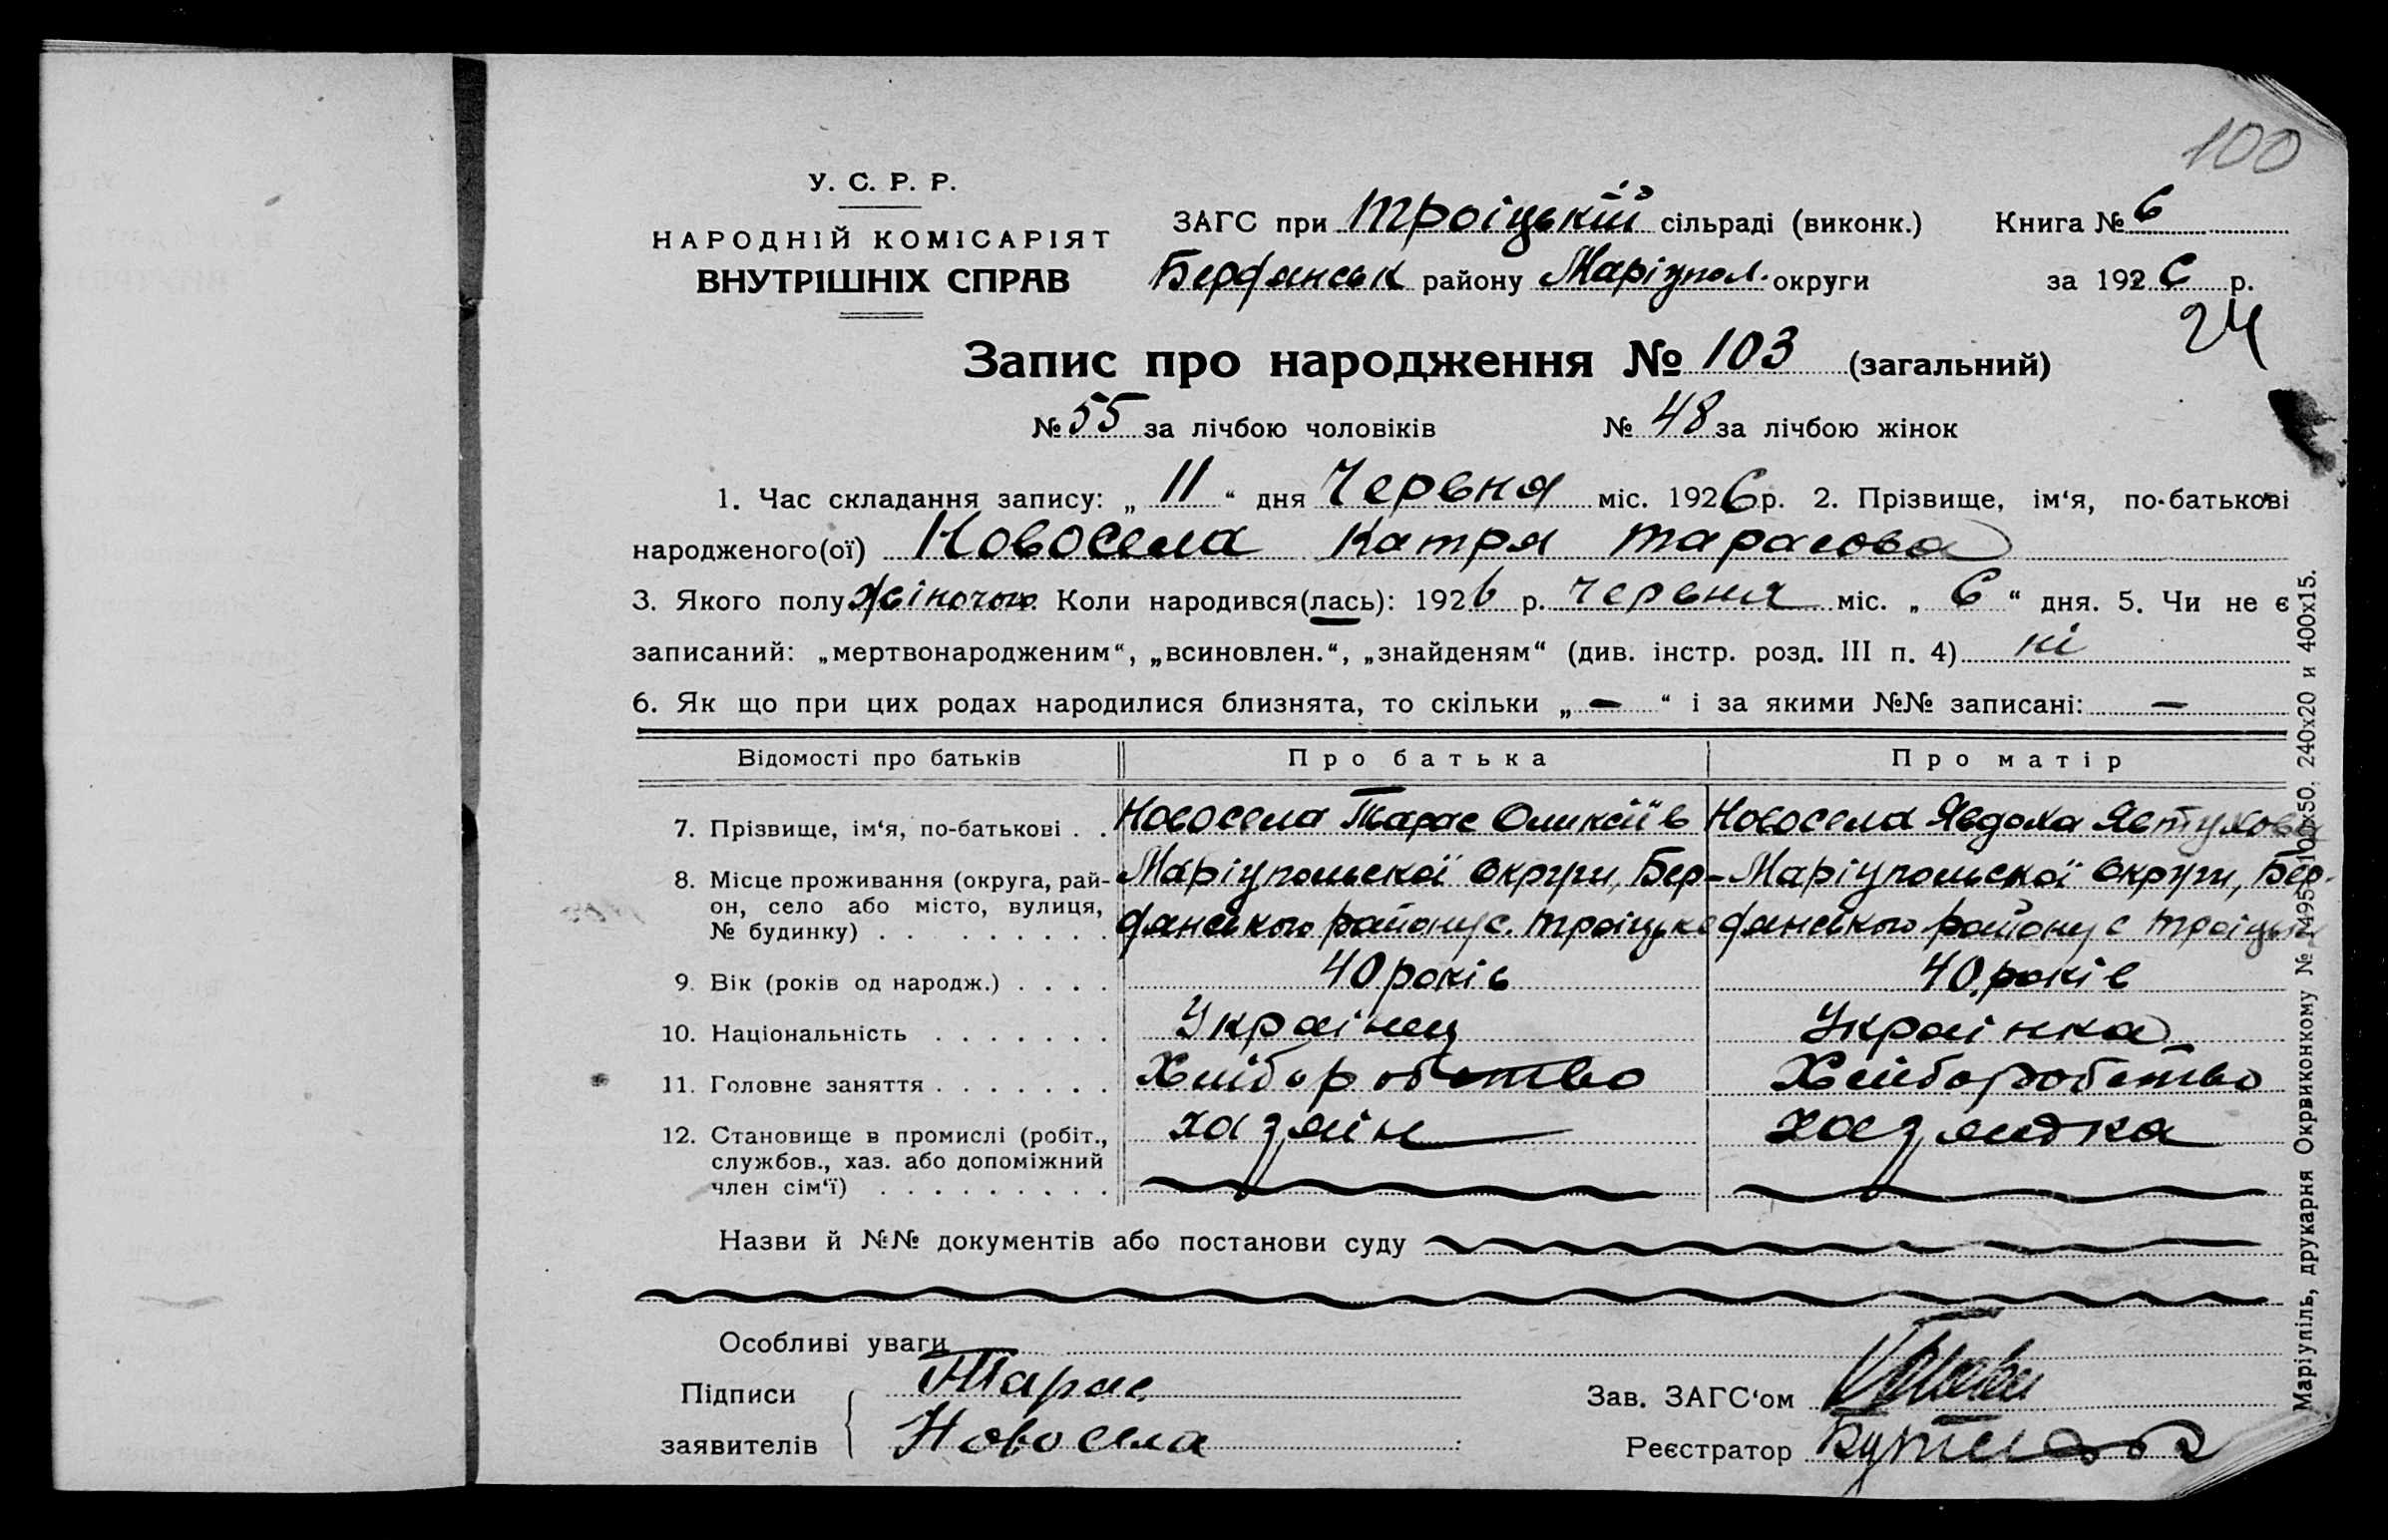 100
У. С. Р. Р.
НАРОДНІЙ КОМІСАРІЯТ
ВНУТРІШНІХ СПРАВ
ЗАГС при Троіцькій сільраді (виконк.) Книга № 6
Бердянськ району Маріупол. округи за 1926 р.
24
Запис про народження № 103 (загальний)
№ 55 за лічбою чоловіків № 48 за лічбою жінок
1. Час складання запису: „ 11 “ дня Червня міс. 1926 р. 2. Прізвище, ім‘я, по-батькові
народженого(ої) Новосела Катря Тарасова
3. Якого полу жіночого Коли народився(лась): 1926 р. червня міс. „ 6 “ дня. 5. Чи не є
записаний: „мертвонародженим“, „всиновлен.“, „знайденям“ (див. інстр. розд. III п. 4) ні
6. Як що при цих родах народилися близнята, то скільки „ — “ і за якими №№ записані: —
Відомості про батьків Про батька Про матір
7. Прізвище, ім‘я, по-батькові . . Новосела Тарас Оликсіїв Новосела Явдоха Явтухова
8. Місце проживання (округа, рай- Маріупольскої округи, Бер- Маріупольскої округи, Бер-
он, село або місто, вулиця, дянського району с. Троіцьке дянського району с Троіцьке
№ будинку) . . . . . . . . .
9. Вік (років од народж.) . . . . 40 років 40 років
10. Національність . . . . . . . Украінец Украінка
11. Головне заняття . . . . . . . Хліборобство Хліборобство
12. Становище в промислі (робіт., хазяін хазяйка
службов., хаз. або допоміжний
член сім‘ї) . . . . . . . . .
Назви й №№ документів або постанови суду
Особливі уваги
Підписи Тарас Зав. ЗАГС‘ом
заявителів Новосела Реєстратор
Маріупіль, друкарня Окрвиконкому № 2495—100х50. 240х20 и 400х15.